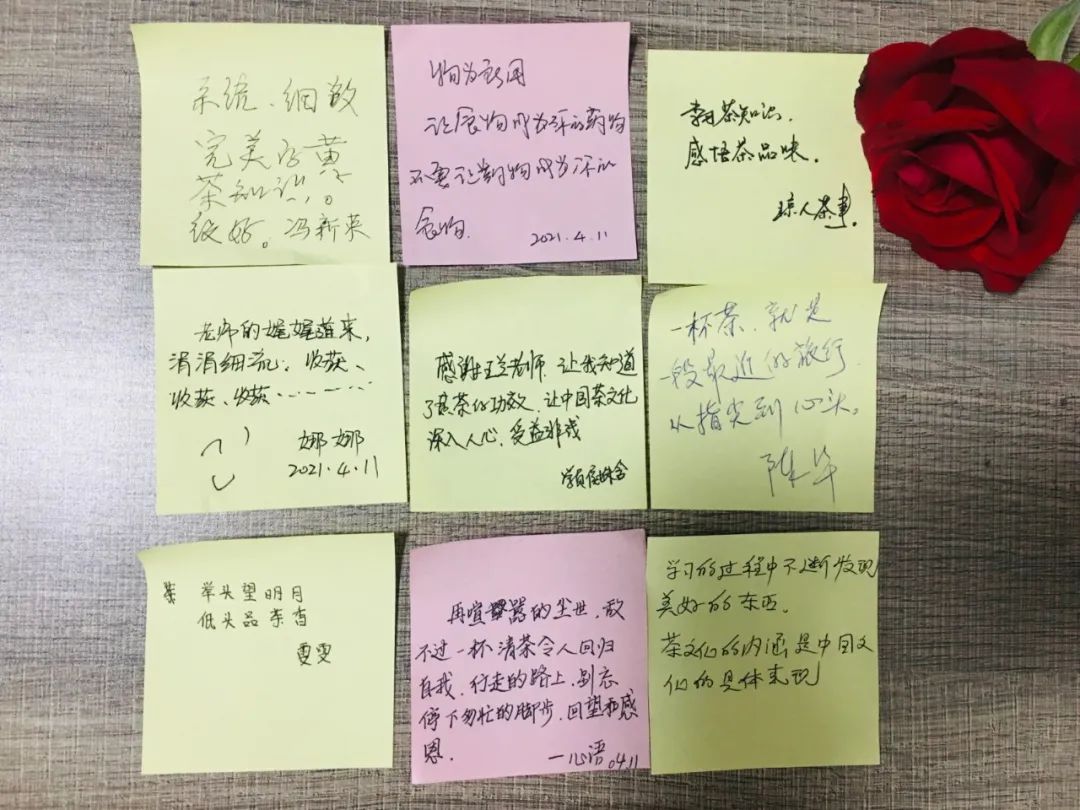 系统、细致
完美的黄
茶知识。
级好。冯新英
物为我用
让食物成为你的药物
不要让药物成为你的
食物.
2021.4.11
茶知识，
感悟茶品味。
人茶事。
老师的娓娓道来，
涓涓细流：收获、
收获、收获………
娜娜
2021.4.11
感谢王兰老师，让我知道
了黄茶的功效，让中国茶文化
深入人心，受益非浅
学员
一杯茶，就是
一段最近的旅行
从指尖到心头。
陈华
茶 举头望明月
低头品茶香
雯雯
再喧嚣的尘世，敌
不过一杯清茶令人回归
自我，行走的路上，别忘
停下匆忙的脚步，回望和感
恩.
一心语 04.11
学习的过程中不断发现
美好的东西.
茶文化的内涵是中国文
化的具体表现